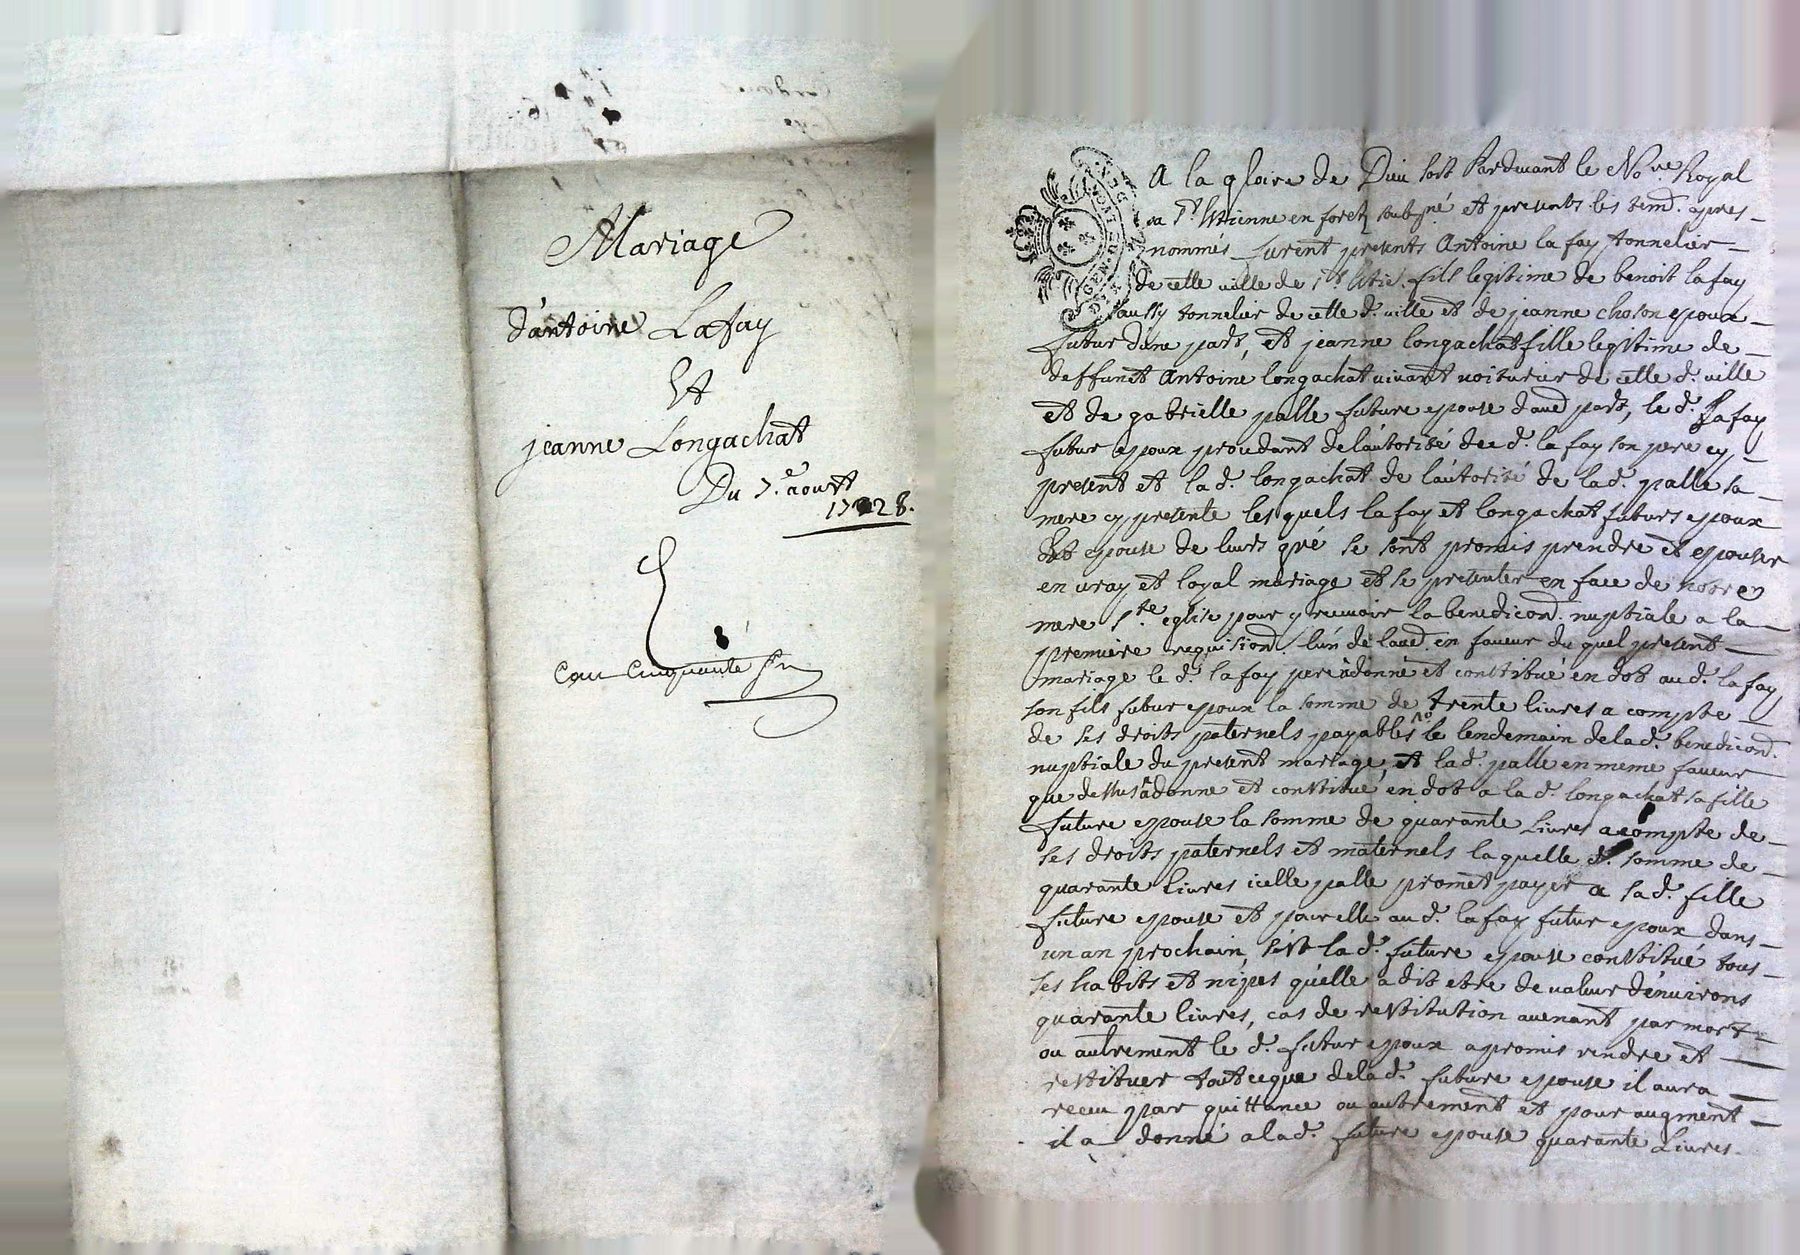 Mariage
d'antoine Lafay
Et
jeanne Longachat
Du 7.e aoust
1728.
Cent Cinquante
GEN. DE LYON
A la gloire de Dieu soit Pardevant le No.re Royal
a S.t Etienne en foretz soubsigné et presents les temd. apres
nommés furent presents Antoine la fay tonnelier
de cette ville de S.t Etie. fils legitime de benoit la fay
aussy tonnelier de cette d. ville et de jeanne choson epoux
futur dune part, et jeanne longachat fille legitime de
deffunct Antoine longachat vivant voiturier de cette d. ville
et de gabrielle palle future epouse daud part, le d. Lafay
futur epoux procedant de l'autorité de d. la fay son pere cy
present et la d. longachat de l'autorité de la d. palle sa
mere cy presente lesquels lafay et longachat futurs epoux
et epouse de leurs gré se sont promis prendre et epouser
en vray et loyal mariage et se presenter en face de notre
mere S.te eglise pour y recevoir la benedicond. nuptiale a la
premiere requisiond. lun de laud. en faveur du quel present
mariage le d. la fay pere a donné et constitué en dot au d. la fay
son fils futur epoux la somme de trente livres a compte
de ses droits paternels payables le lendemain de la d. benedicond.
nuptiale du present mariage, et la d. palle en meme faveur
que dessus a donne et constitué en dot a la d. longachat sa fille
future epouse la somme de quarante Livres a compte de
ses droits paternels et maternels laquelle d. somme de
quarante Livres icelle palle promet payer a sa d. fille
future epouse et pour elle au d. la fay futur epoux dans
un an prochain, s'est la d. future epouse constitué tous
ses habits et nipes qu'elle a dit etre de valeur d'environs
quarante livres, cas de restitution avenant par mort
ou autrement le d. futur epoux a promis rendre et
restituer tout ce que de la d. future epouse il aura
recu par quittance ou autrement et pour augment
il a donné a la d. future epouse quarante Livres